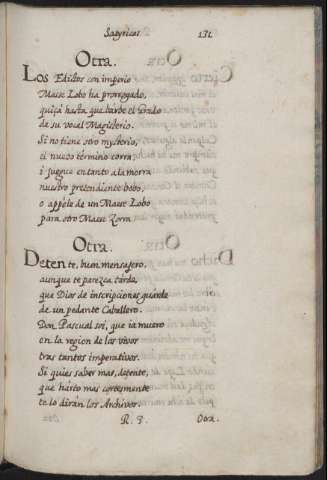 Satyricas 131
Otra.
Los Edictos con imperio
Maese Lobo ha prorrogado,
quiçà hasta que barbe el grado
de su vocal Magisterio.
Si no tiene otro mysterio,
el nuevo término corra
i juegue en tanto a la morra
nuestro pretendiente bobo,
o appele de un Maese Lobo
para otro Maese Zorra
Otra.
Detente, buen mensagero,
aunque te parezca tarde,
que Dios de inscripciones guarde
de un pedante Caballero.
Don Pascual soi, que ia muero
en la region de los vivos
tras tantos imperativos.
Si quies saber mas, detente,
que harto mas cortesmente
te lo dirán los Archivos.
R. 3. Otra.